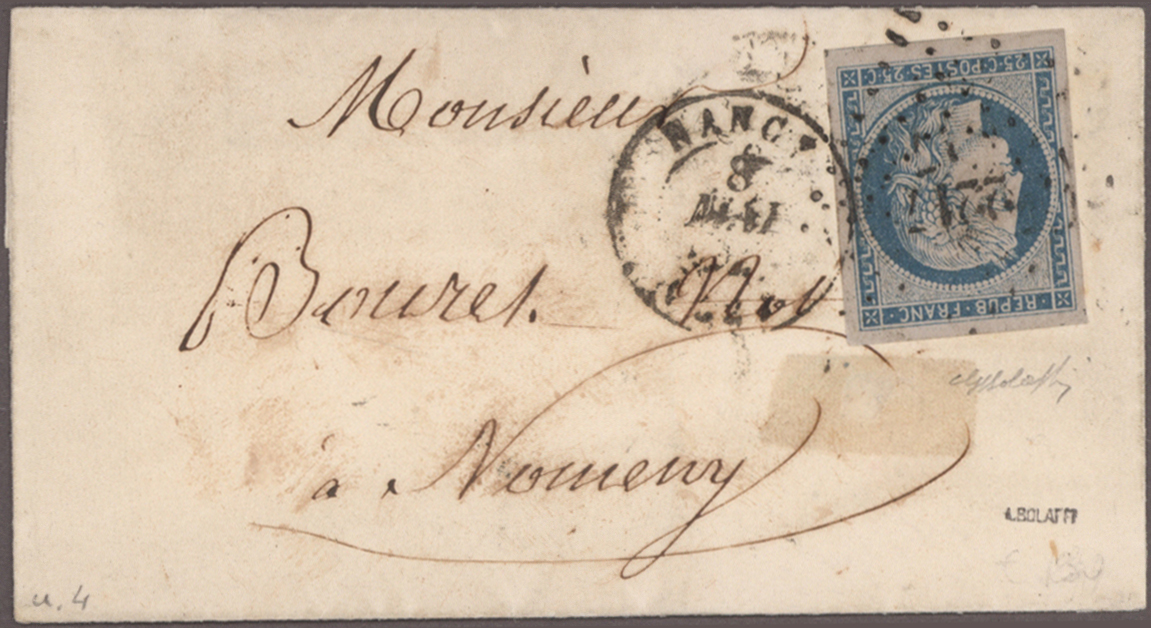 25·C·POSTES·25·C
REPUB·FRANC
NANCY
8
MAI
Monsieur
Bouret. Not
à Nomeny
A.BOLAFFI
n. 4